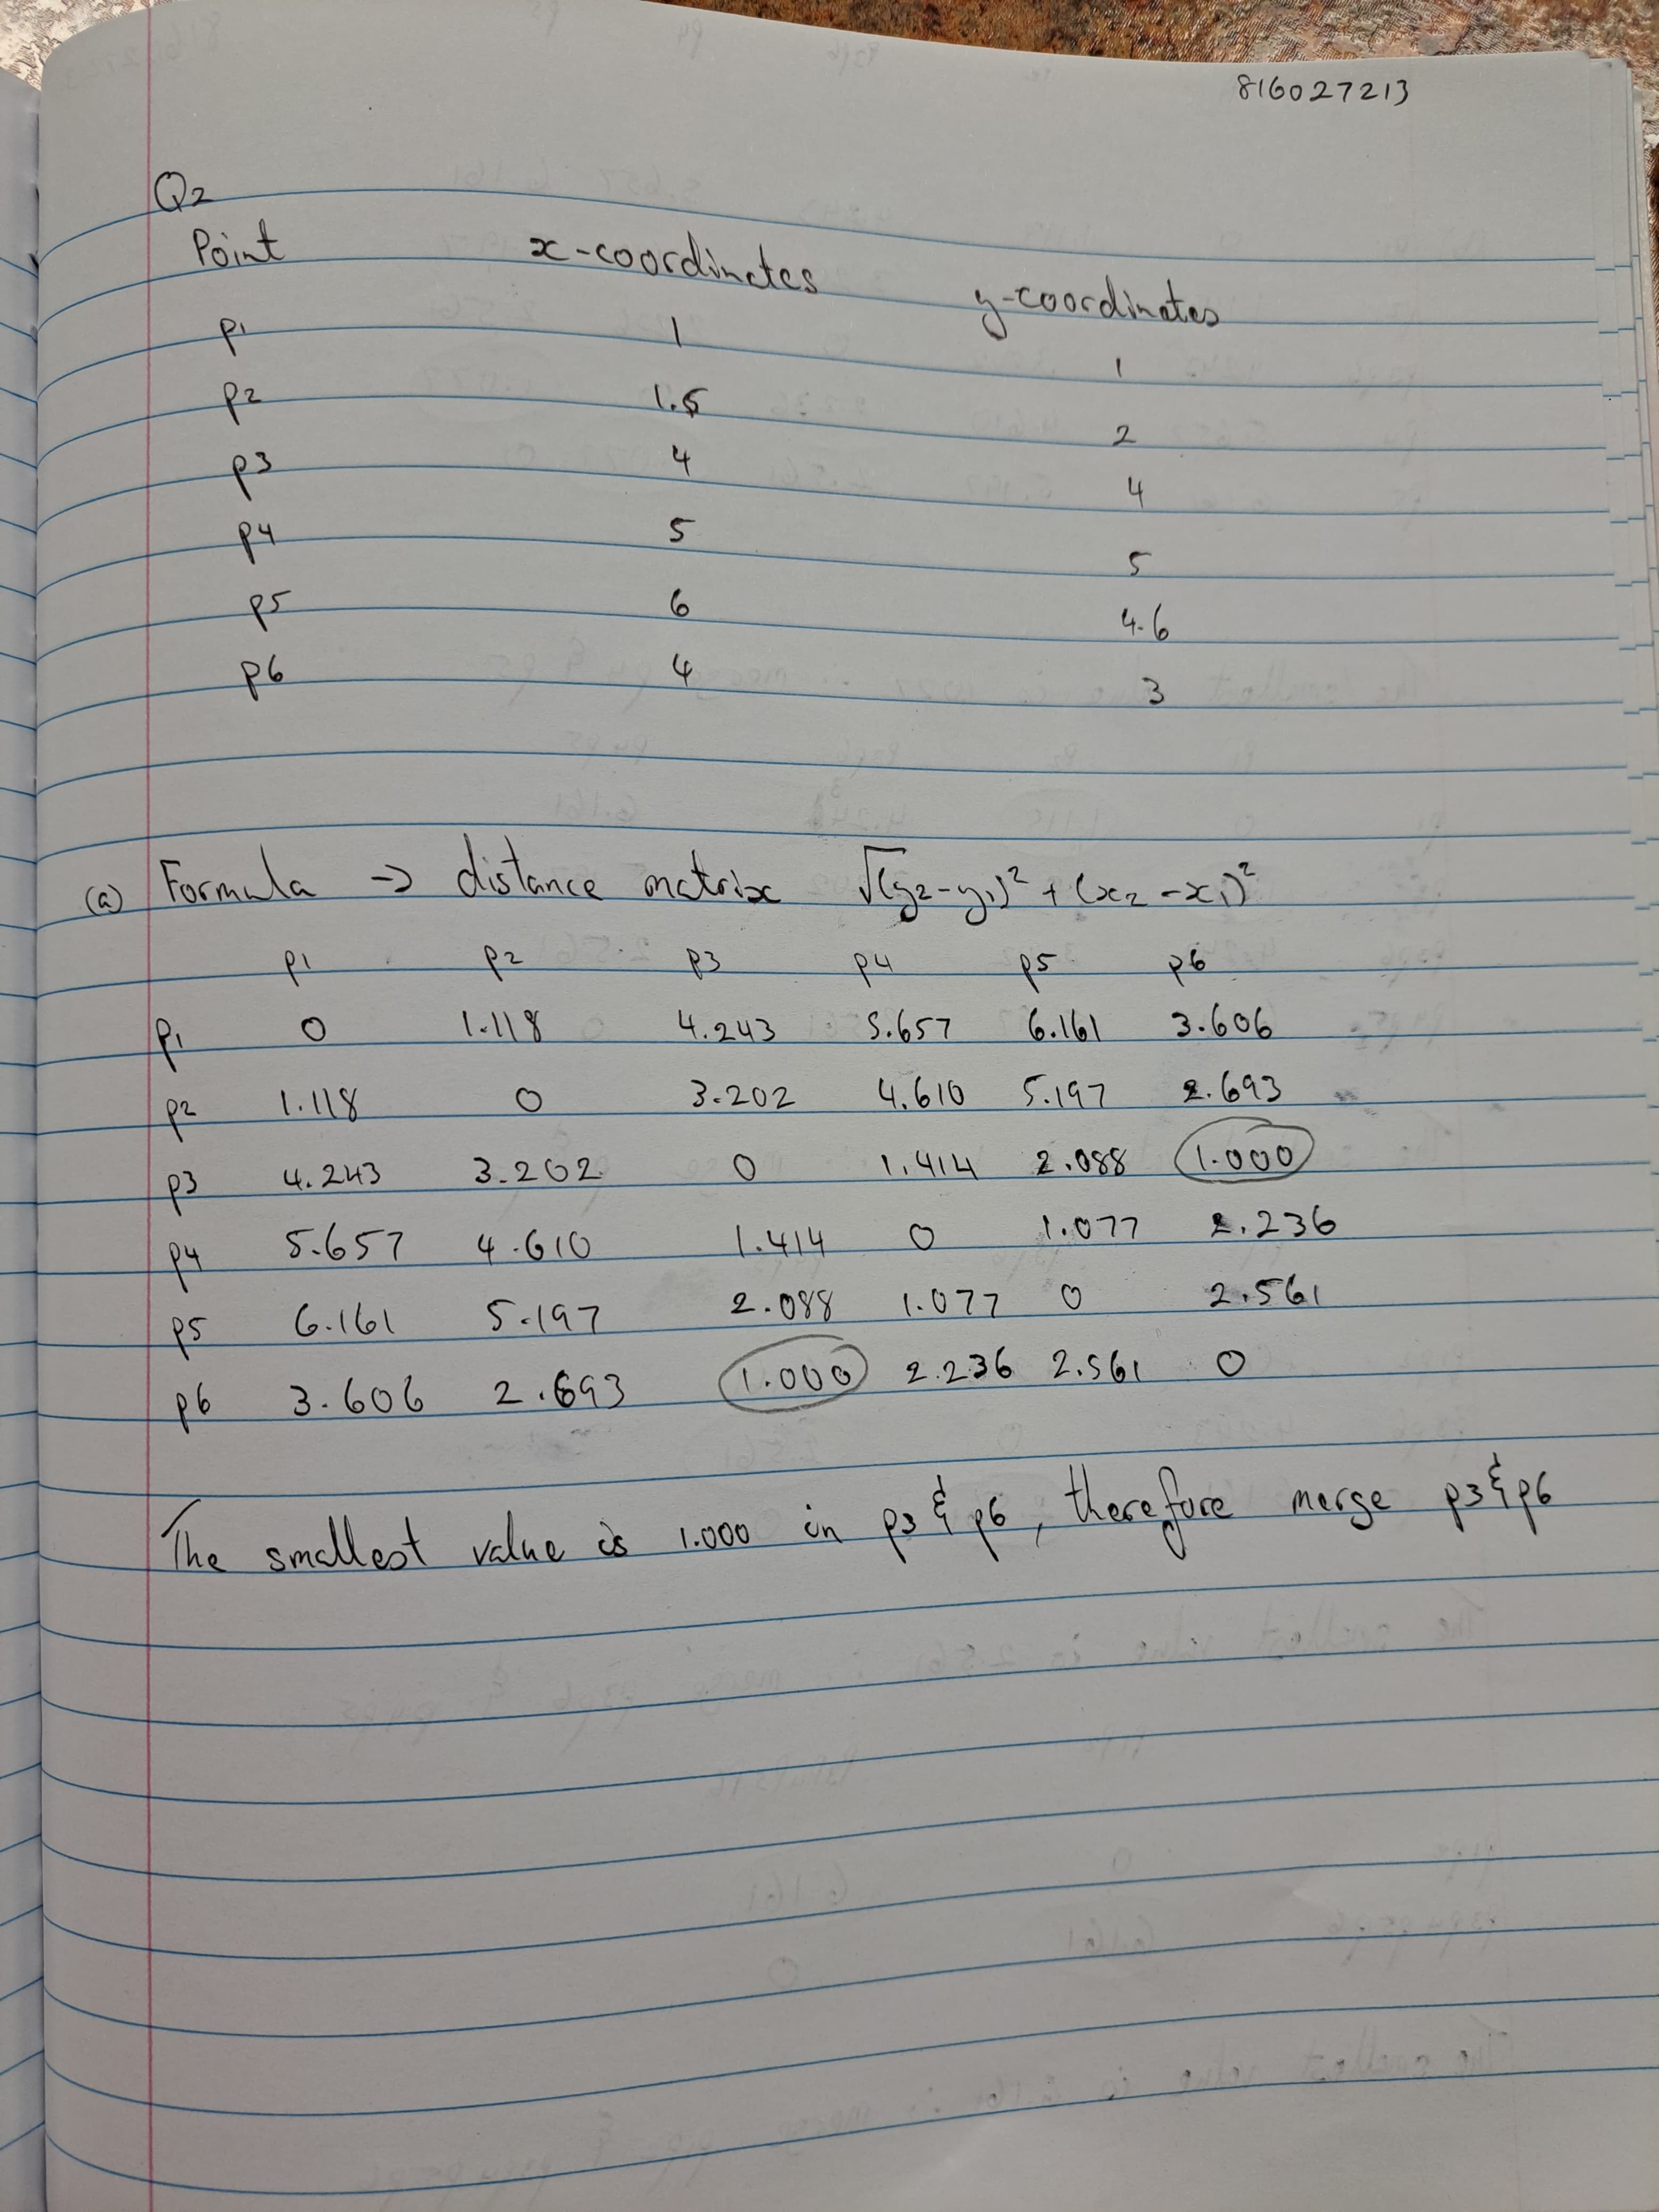 816027213
Q2
Point x-coordinates y-coordinates
p1 1 1
p2 1.5 2
p3 4 4
p4 5 5
p5 6 4.6
p6 4 3
(a) Formula → distance matrix √(y2-y1)² + (x2-x1)²
p1 p2 p3 p4 p5 p6
p1 0 1.118 4.243 5.657 6.161 3.606
p2 1.118 0 3.202 4.610 5.197 2.693
p3 4.243 3.202 0 1.414 2.088 1.000
p4 5.657 4.610 1.414 0 1.077 2.236
p5 6.161 5.197 2.088 1.077 0 2.561
p6 3.606 2.693 1.000 2.236 2.561 0
The smallest value is 1.000 in p3 & p6, therefore merge p3 & p6